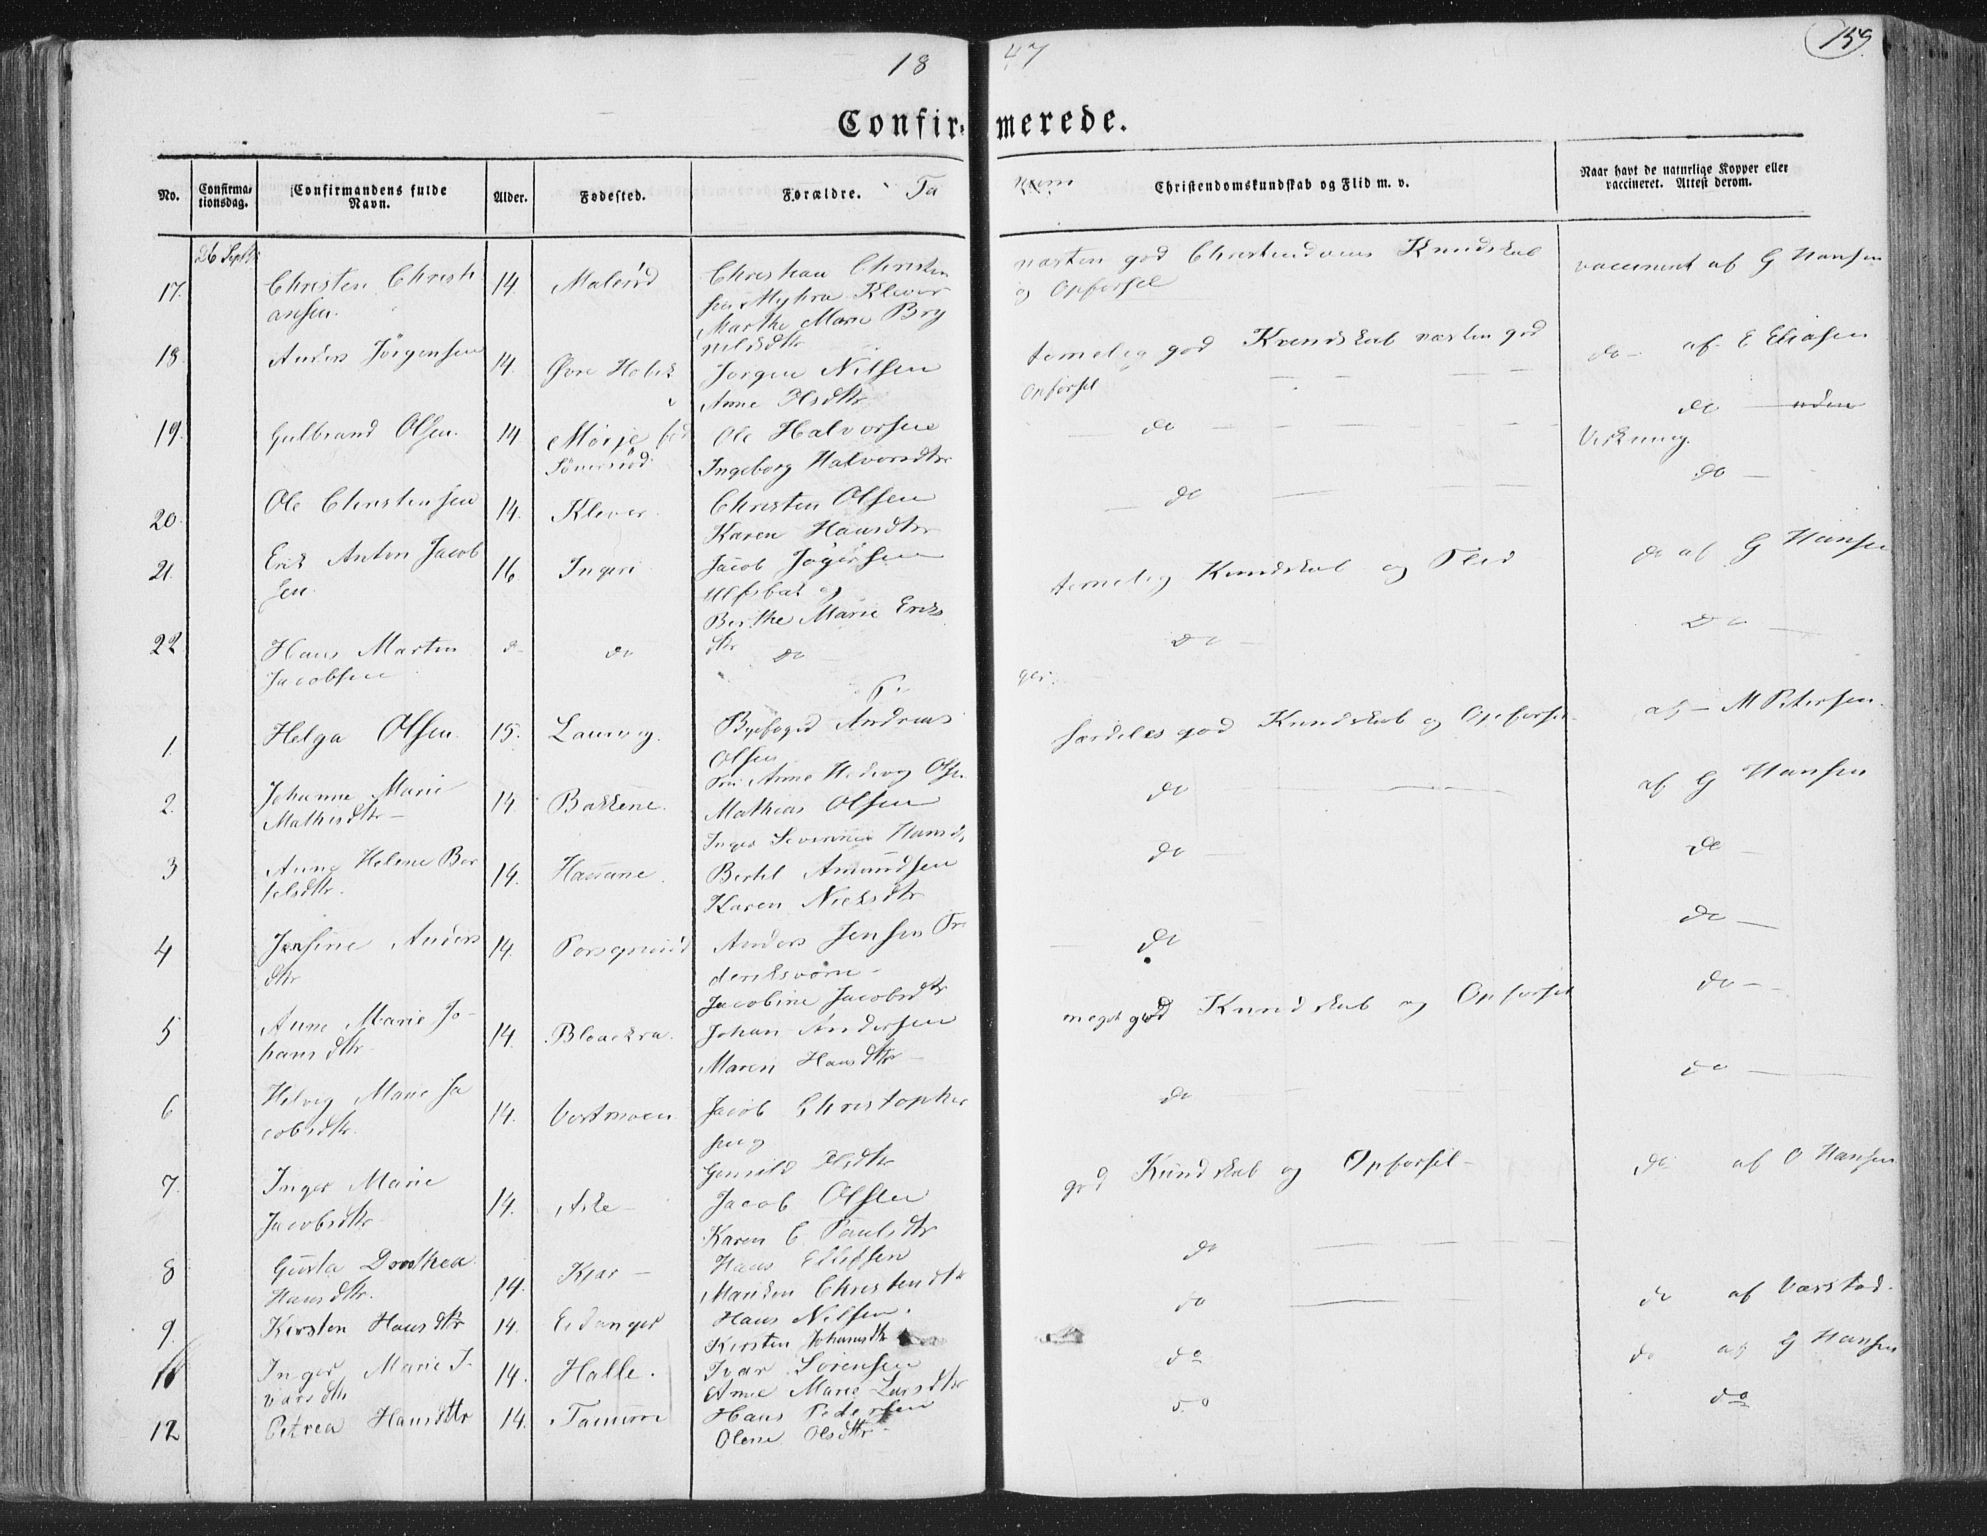 18 47
159
Confir- merede.
No. Confirmationsdag. Confirmandens fulde Navn. Alder. Fødested. Forældre. Christendomskundskab og Flid m. v. Naar havt de naturlige Kopper eller vaccineret. Attest derom.
26 Septbr
17. Christen Christi 14. Christian Christen næsten god Christendoms Kundskab vaccineret af G Hansen
ansen. sen Myhra Klever og Opførsel
Marthe Marie Bry
nildsdtr
18. Anders Jörgensen 14. Øvre Holsek Jörgen Nilsen temelig god Kundskab næsten god do - af E Eliasen
Anne Olsdtr Opførsel
19. Gulbrand Olsen. 14. Mørje Ole Halvorsen do do uden
Ingeborg Halvorsdtr Virkning.
20. Ole Christensen 14. Klever. Christen Olsen do do
Karen Hansdtr
21. Erik Anton Jacob 16 Jacob temelig Kundskab og Flid do af G Hansen
sen.
Berthe Marie Eriks
dtr
22. Hans Martin do do do do do
Jacobsen
Pi ger.
1. Helga Olsen. 15. Laurvig. Byefoged Andreas særdeles god Kundskab og Opførsel af M Petersen.
Olsen
Anne Hedevig Olsen
2. Johanne Marie 14. Bakkene. Mathias Olsen do af G Hansen
Mathisdtr Inger Severine Hansd.
3 Anne Helene Ber 14. Bertel Amundsen do do
telsdtr. Karen Nielsdtr
4 Jensine Anders 14. Porsgrund Anders Jensen Fre do do
dtr. deriksværn
Jacobine Jacobsdtr
5 Anne Marie Jo- 14. Johan Andersen meget god Kundskab og Opførsel do
hansdtr. Maren Hansdtr
6 Helvig Marie Ja 14. Vestmoen Jacob Christopher do do
cobsdtr. sen og
Gunild Olsdtr
7. Inger Marie 14. Aske Jacob Olsen god Kundskab og Opførsel do af O Hansen
Jacobsdtr. Karen C. Paulsdtr
8 Gusta Dorthea 14. Kjær Hans Ellefsen do
Hansdtr. Christensdtr
9. Kirsten Hansdtr 14. Eidanger Hans Nilsen. do do af Værstad.
Kirsten Johansdtr
Inger Marie I- 14. Halle. Ivar Sörensen do do af G Hansen
varsdtr Anne Marie Larsdtr
12 Petrea Hansdtr 14. Tanum Hans Pedersen do do
Olene Olsdtr